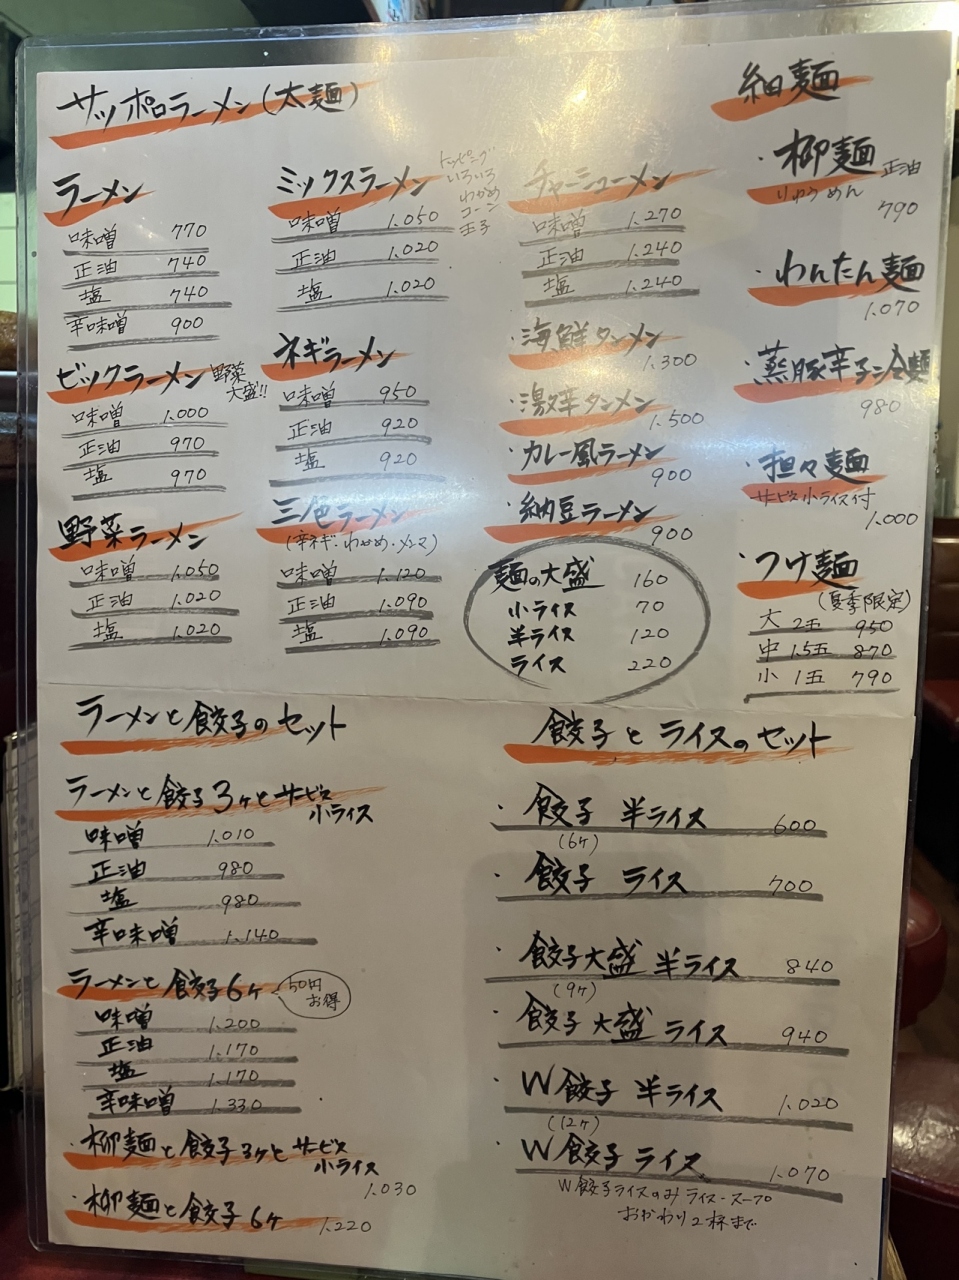 サッポロラーメン(太麺)
ラーメン
味噌 770
正油 740
塩 740
辛味噌 900
ビックラーメン 野菜大盛!!
味噌 1.000
正油 970
塩 970
野菜ラーメン
味噌 1.050
正油 1.020
塩 1.020
ミックスラーメン
トッピング
いろいろ
わかめ
コーン
玉子
味噌 1.050
正油 1.020
塩 1.020
ネギラーメン
味噌 950
正油 920
塩 920
三色ラーメン
(辛ネギ・わかめ・メンマ)
味噌 1.120
正油 1.090
塩 1.090
チャーシューメン
味噌 1.270
正油 1.240
塩 1.240
・海鮮タンメン
1.300
・激辛タンメン
1.500
・カレー風ラーメン
900
・納豆ラーメン
900
麺の大盛 160
小ライス 70
半ライス 120
ライス 220
細麺
・柳麺 正油
りゅうめん
790
・わんたん麺
1.070
・蒸豚辛子
980
・担々麺
サービス小ライス付
1.000
・つけ麺
(夏季限定)
大 2玉 950
中 1.5玉 870
小 1玉 790
ラーメンと餃子のセット
ラーメンと餃子3ケとサービス
小ライス
味噌 1.010
正油 980
塩 980
辛味噌 1.140
ラーメンと餃子6ケ
50円
お得
味噌 1.200
正油 1.170
塩 1.170
辛味噌 1.330
・柳麺と餃子3ケとサービス
小ライス
1.030
・柳麺と餃子6ケ 1.220
餃子とライスのセット
・餃子 半ライス 600
(6ケ)
・餃子 ライス 700
・餃子大盛 半ライス 840
(9ケ)
・餃子大盛 ライス 940
・W餃子 半ライス 1.020
(12ケ)
・W餃子 ライス 1.070
W餃子ライスのみライス・スープ
おかわり2杯まで